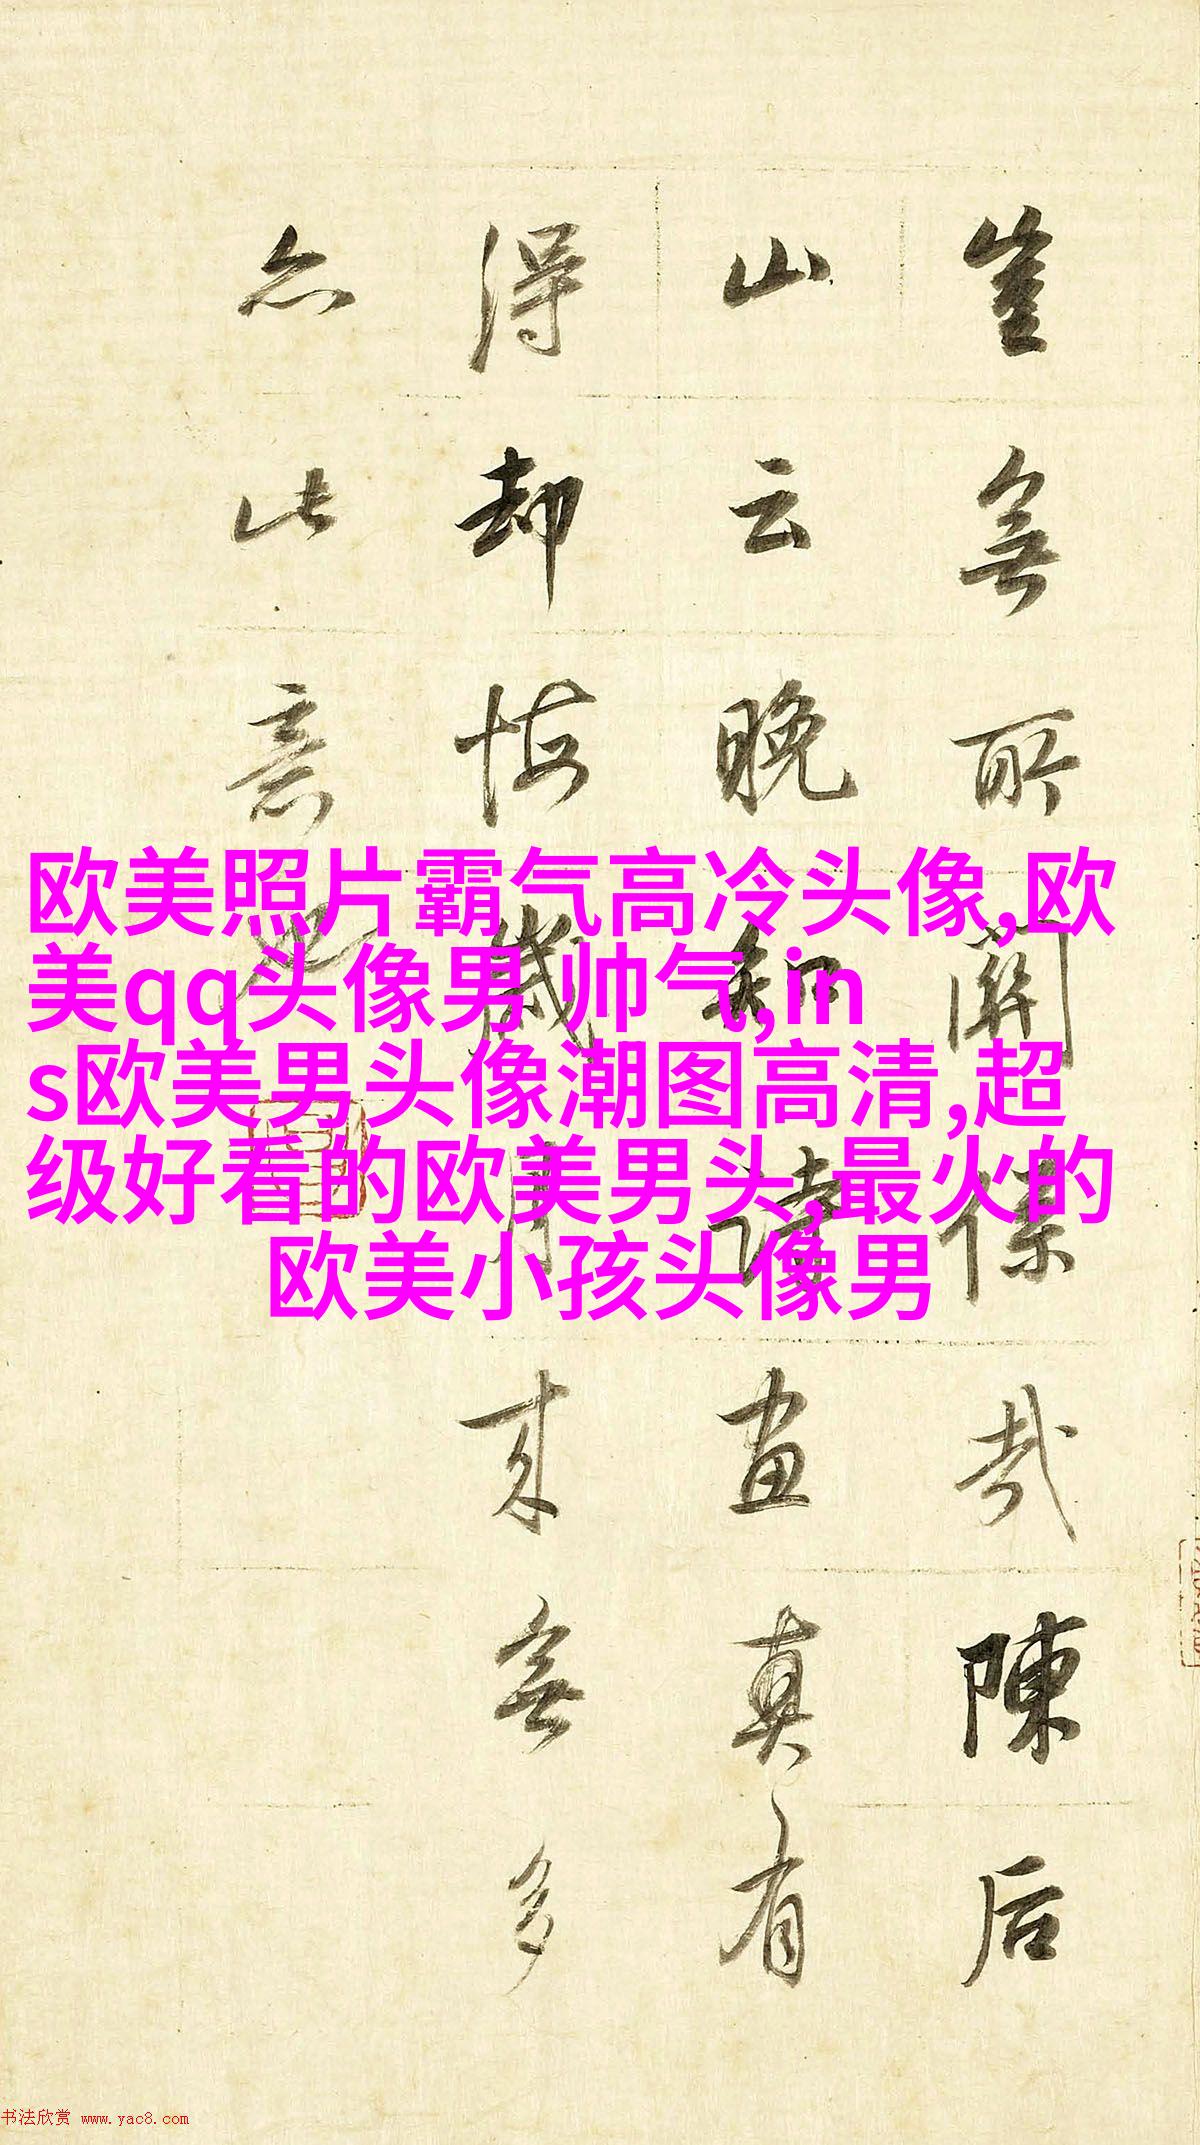 豈無所關係哉陳后
山云晚知讀畫真有
得却恨歲月来無多
亦此意也
欧美照片霸气高冷头像,欧
美qq头像男 帅气,in
s欧美男头像潮图高清,超
级好看的欧美男头,最火的
欧美小孩头像男
书法欣赏 www.yac8.com